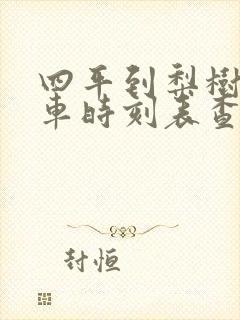 四平到梨樹
車時刻表查
封恒